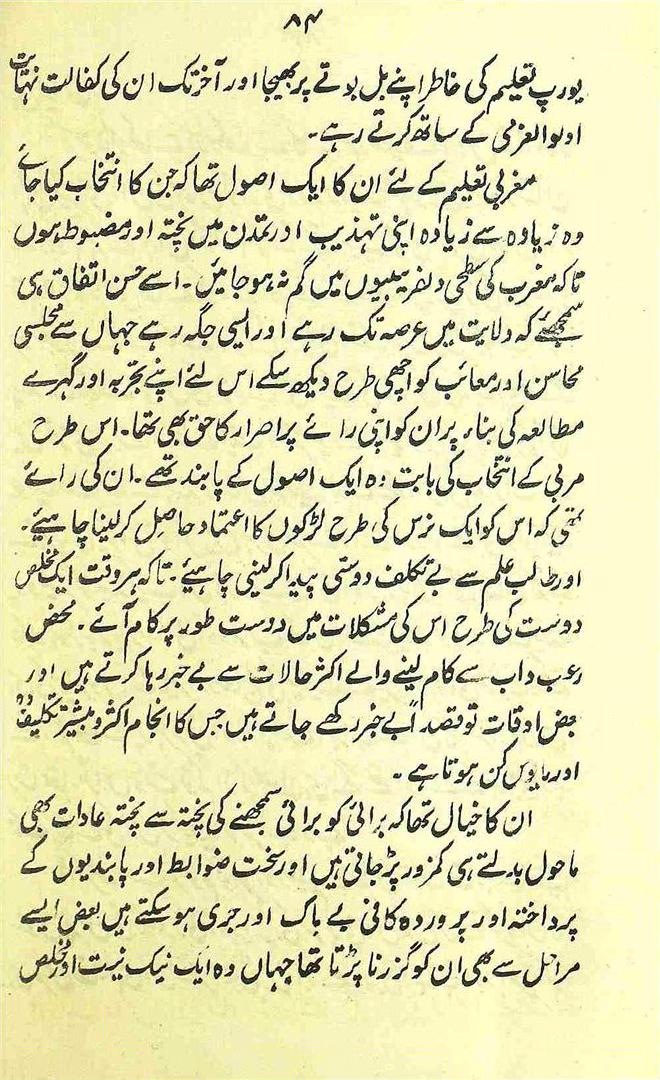 ۸۴
یورپ تعلیم کی خاطر اپنے بل بوتے پر بھیجا اور آخر تک ان کی کفالت نہایت
اولوالعزمی کے ساتھ کرتے رہے۔
مغربی تعلیم کے لئے ان کا ایک اصول تھا کہ جن کا انتخاب کیا جائے
وہ زیادہ سے زیادہ اپنی تہذیب اور تمدن میں پختہ اور مضبوط ہوں
تاکہ مغرب کی سطحی دلفریبیوں میں گم نہ ہو جائیں۔ اسے حسن اتفاق ہی
سمجھئے کہ ولایت میں عرصہ تک رہے اور ایسی جگہ رہے جہاں سے مجلسی
محاسن اور معائب کو اچھی طرح دیکھ سکے اس لئے اپنے تجربہ اور گہرے
مطالعہ کی بناء پر ان کو اپنی رائے پر اصرار کا حق بھی تھا۔ اس طرح
مربی کے انتخاب کی بابت وہ ایک اصول کے پابند تھے۔ ان کی رائے
تھی کہ اس کو ایک نرس کی طرح لڑکوں کا اعتماد حاصل کرلینا چاہیئے۔
اور طالب علم سے بے تکلف دوستی پیدا کرلینی چاہیئے۔ تاکہ ہر وقت ایک مخلص
دوست کی طرح اس کی مشکلات میں دوست طور پر کام آئے۔ محض
رعب داب سے کام لینے والے اکثر حالات سے بے خبر رہا کرتے ہیں اور
بعض اوقات تو قصداً بے خبر رکھے جاتے ہیں جس کا انجام اکثر و بیشتر تکلیف دہ
اور مایوس کن ہوتا ہے۔
ان کا خیال تھا کہ برائی کو برائی سمجھنے کی پختہ سے پختہ عادات بھی
ماحول بدلتے ہی کمزور پڑ جاتی ہیں اور سخت ضوابط اور پابندیوں کے
پرداختہ اور پروردہ کافی بے باک اور جری ہو سکتے ہیں بعض ایسے
مراحل سے بھی ان کو گزرنا پڑتا تھا جہاں وہ ایک نیک نیت اور مخلص